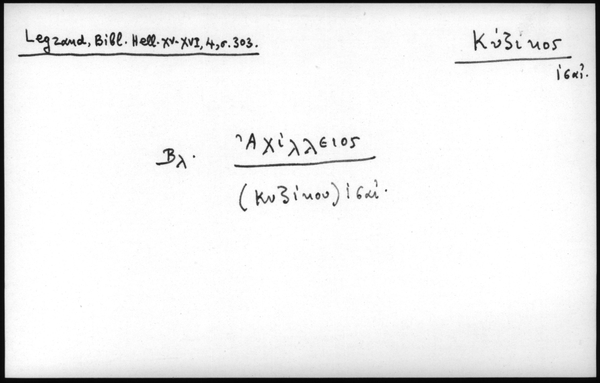 Legrand, Bibl. Hell. XV-XVI, 4, σ. 303.
Κύζικος
ἰσαί.
Βλ. Ἀχίλλειος
(Κυζίκου) ἰσαί.